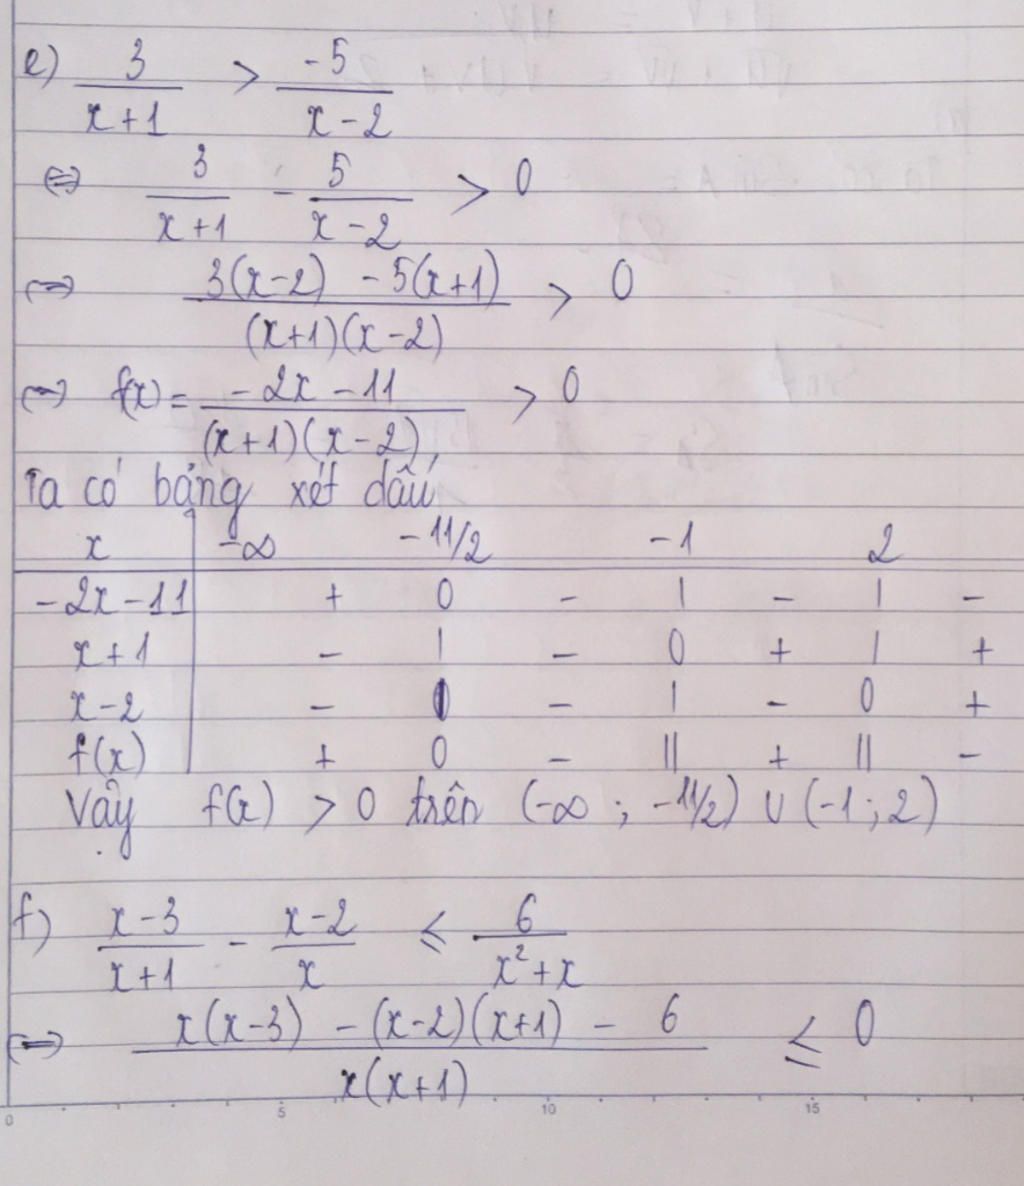 e) 3/(x+1) > -5/(x-2)
⇔ 3/(x+1) - 5/(x-2) > 0
⇔ (3(x-2) - 5(x+1))/((x+1)(x-2)) > 0
⇔ f(x) = (-2x-11)/((x+1)(x-2)) > 0
Ta có bảng xét dấu
x | -∞ -11/2 -1 2
-2x-11 | + 0 - | - | -
x+1 | - | - 0 + | +
x-2 | - | - | - 0 +
f(x) | + 0 - || + || -
Vậy f(x) > 0 trên (-∞; -11/2) ∪ (-1; 2)
f) (x-3)/(x+1) - (x-2)/x ≤ 6/(x²+x)
⇔ (x(x-3) - (x-2)(x+1) - 6)/(x(x+1)) ≤ 0
0 5 10 15